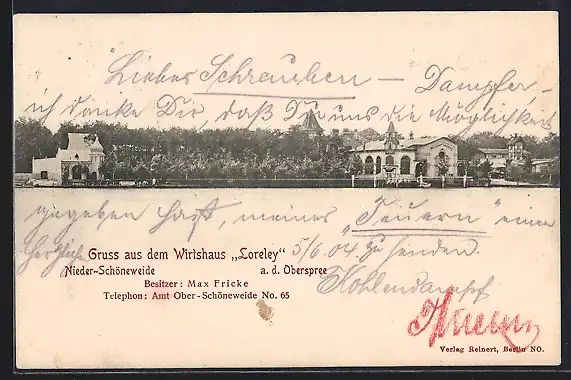 Liebes Schrauben – Dampfer –
ich danke Dir, daß Du uns die Möglichkeit
gegeben hast, meiner "Teuern" einen
herzlichen
5/6.04 zu senden.
Kohlendampf
Gruss aus dem Wirtshaus „Loreley“
Nieder-Schöneweide a. d. Oberspree
Besitzer: Max Fricke
Telephon: Amt Ober-Schöneweide No. 65
Verlag Reinert, Berlin NO.